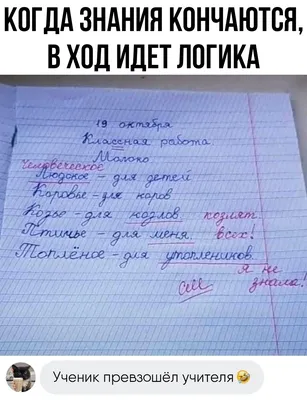 КОГДА ЗНАНИЯ КОНЧАЮТСЯ,
В ХОД ИДЕТ ЛОГИКА
19 октября
Классная работа
Молоко
Человеческое
Людское – для детей
Коровье – для коров
Козье – для козлов козлят
Птичье – для меня. всех!
Топлёное – для утоплеников.
я не
знала!
см
Ученик превзошёл учителя🤣